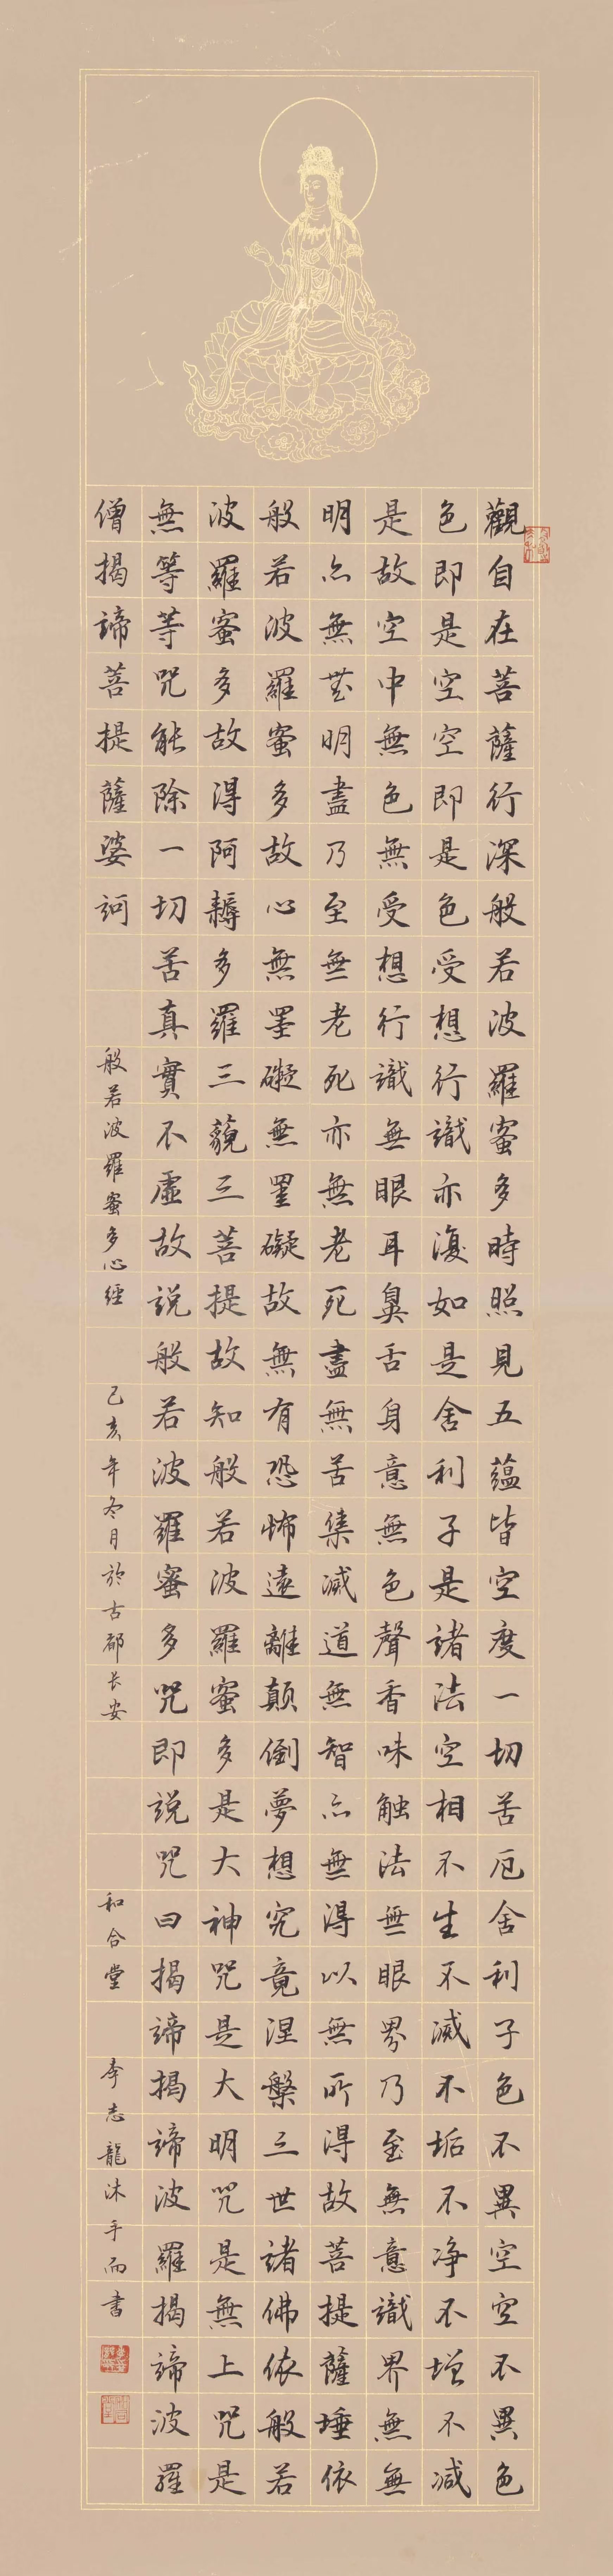 觀自在菩薩行深般若波羅蜜多時照見五蘊皆空度一切苦厄舍利子色不異空空不異色
色即是空空即是色受想行識亦復如是舍利子是諸法空相不生不滅不垢不净不增不减
是故空中無色無受想行識無眼耳鼻舌身意無色聲香味触法無眼界乃至無意識界無無
明亦無無明盡乃至無老死亦無老死盡無苦集滅道無智亦無得以無所得故菩提薩埵依
般若波羅蜜多故心無罣礙無罣礙故無有恐怖遠離顛倒夢想究竟涅槃三世諸佛依般若
波羅蜜多故得阿耨多羅三藐三菩提故知般若波羅蜜多是大神咒是大明咒是無上咒是
無等等咒能除一切苦真實不虛故説般若波羅蜜多咒即説咒曰揭諦揭諦波羅揭諦波羅
僧揭諦菩提薩婆訶
般若波羅蜜多心經
己亥年冬月於古都長安
和合堂
李志龍沐手而書